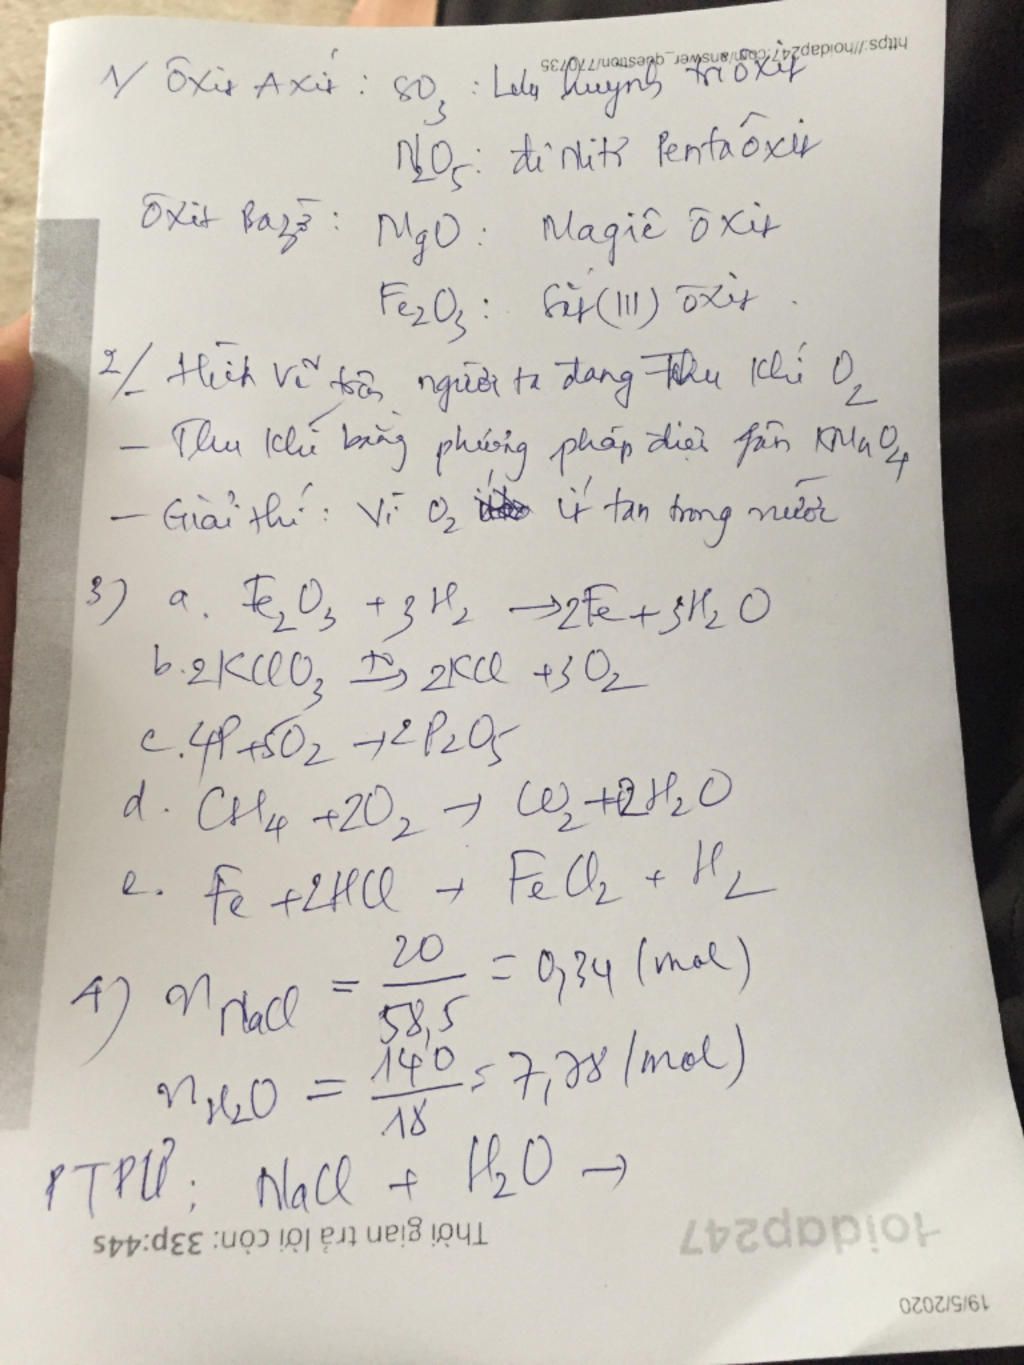 https://hoidap247.com/answer_question/770735
1/ Ôxit Axit : SO3 : Lưu huỳnh tri ôxit
N2O5 : đi Nitơ Pentaôxit
Ôxit Bazơ : MgO : Magiê ôxit
Fe2O3 : Sắt (III) ôxit .
2/ - Hình vẽ trên người ta đang Thu Khí O2
- Thu khí bằng phương pháp điện phân KMnO4
- Giải thí : Vì O2 ít tan trong nước
3) a. Fe2O3 + 3H2 → 2Fe + 3H2O
b. 2KClO3 → 2KCl + 3O2
c. 4P + 5O2 → 2P2O5
d. CH4 + 2O2 → CO2 + 2H2O
e. Fe + 2HCl → FeCl2 + H2
4) nNaCl = 20/58,5 = 0,34 (mol)
nH2O = 140/18 = 7,78 (mol)
PTPƯ : NaCl + H2O →
Thời gian trả lời còn: 33p:44s
hoidap247
19/5/2020